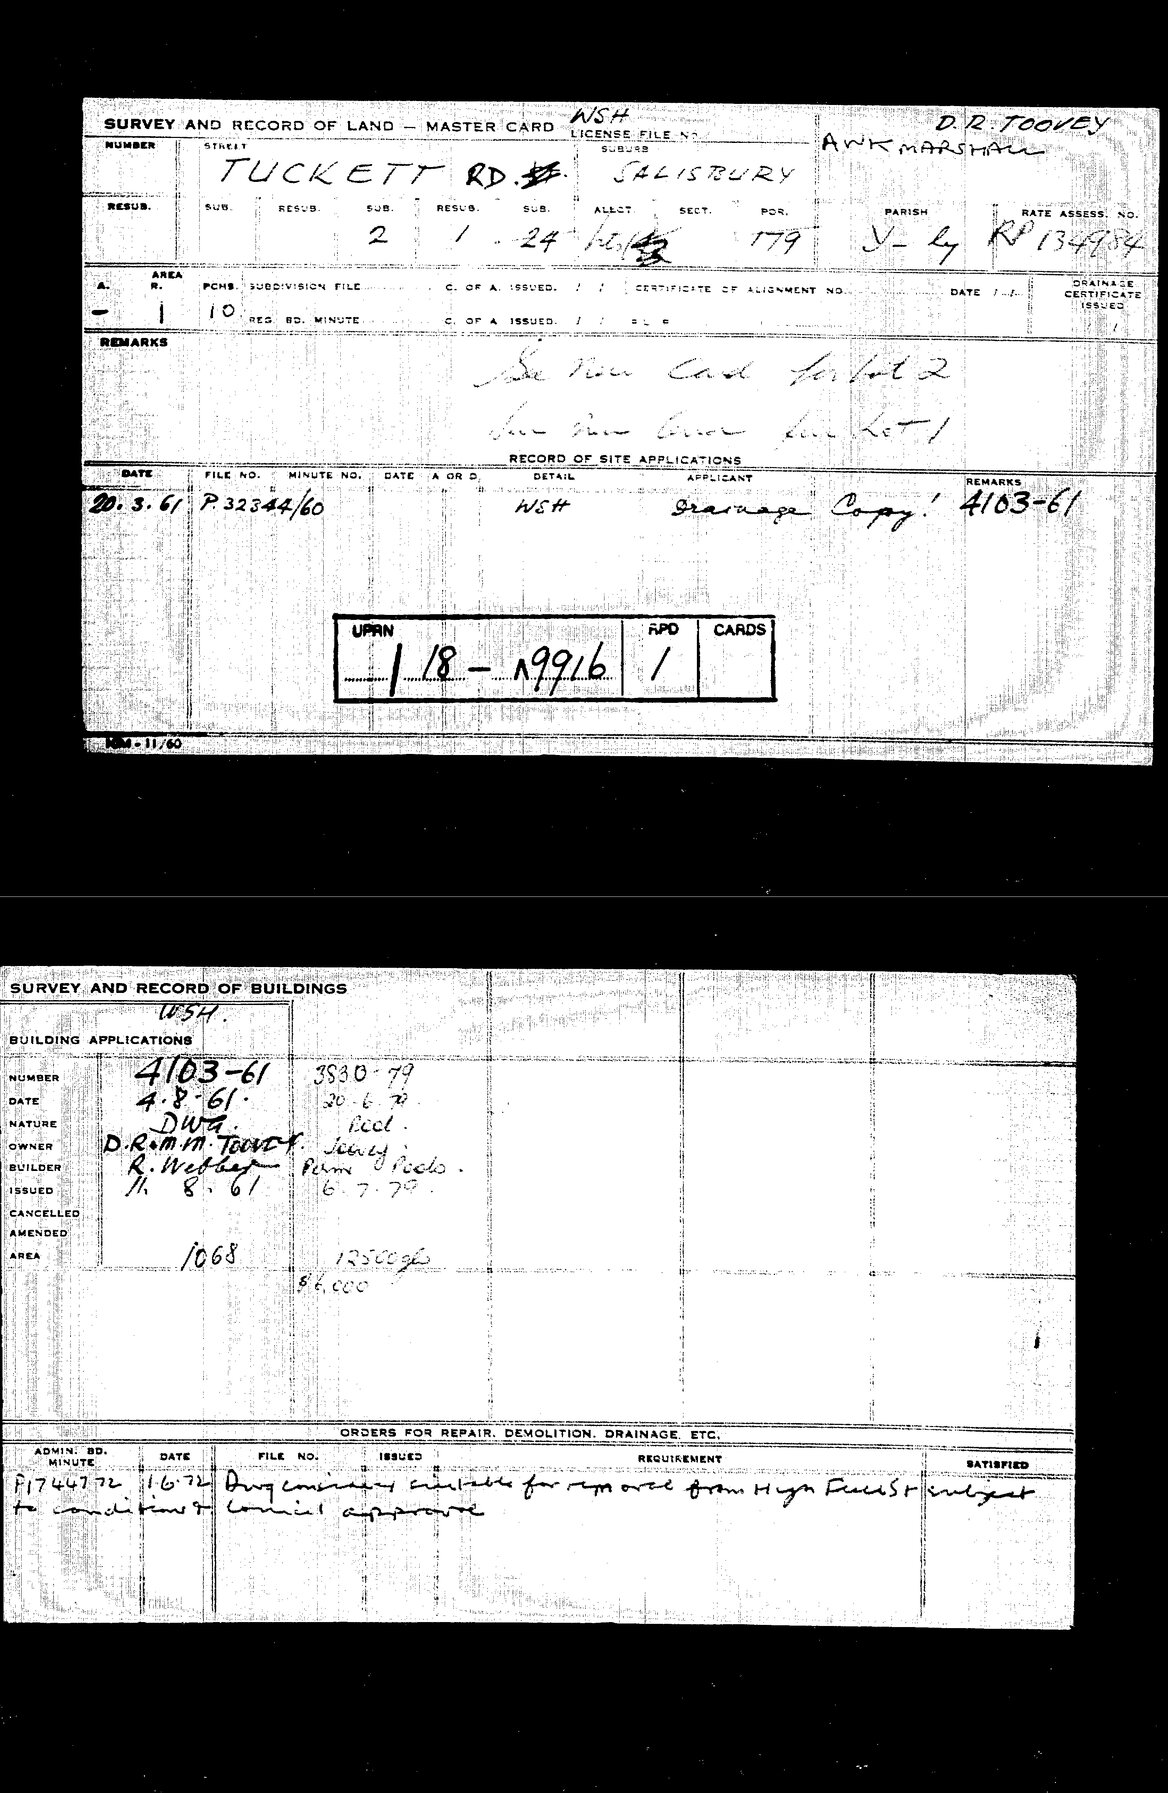 WSH
D. R. TOOVEY
SURVEY AND RECORD OF LAND — MASTER CARD LICENSE FILE No.
A W K MARSHALL
NUMBER STREET SUBURB
TUCKETT RD. SALISBURY
RESUB. SUB. RESUB. SUB. RESUB. SUB. ALLOT. SECT. POR. PARISH RATE ASSESS. NO.
2 1 24 179 Y - ly RP 134984
AREA
A. R. PCHS. SUBDIVISION FILE C. OF A. ISSUED. / / CERTIFICATE OF ALIGNMENT NO. DATE / / DRAINAGE CERTIFICATE ISSUED
— 1 10 REG. BD. MINUTE C. OF A ISSUED. / /
REMARKS
See New Card for Lot 2
See New Card for Lot 1
RECORD OF SITE APPLICATIONS
DATE FILE NO. MINUTE NO. DATE A OR D DETAIL APPLICANT REMARKS
20.3.61 P.32344/60 WSH Drainage Copy! 4103-61
UPRN RPD CARDS
1 18 - 19916 1
11/60
SURVEY AND RECORD OF BUILDINGS
WSH.
BUILDING APPLICATIONS
NUMBER 4103-61 3830-79
DATE 4.8.61. 20-6-79
NATURE DWG. Pool.
OWNER D.R. & M.M. Toovey. Toovey.
BUILDER R. Webber Pools.
ISSUED 11. 8. 61 6.7.79.
CANCELLED
AMENDED
AREA 1068 12500gls
$6,000
ORDERS FOR REPAIR. DEMOLITION. DRAINAGE. ETC.
ADMIN. BD. MINUTE DATE FILE NO. ISSUED REQUIREMENT SATISFIED
P1744772 1.6.72 Dwg suitable for removal from High subject
to conditions & approval